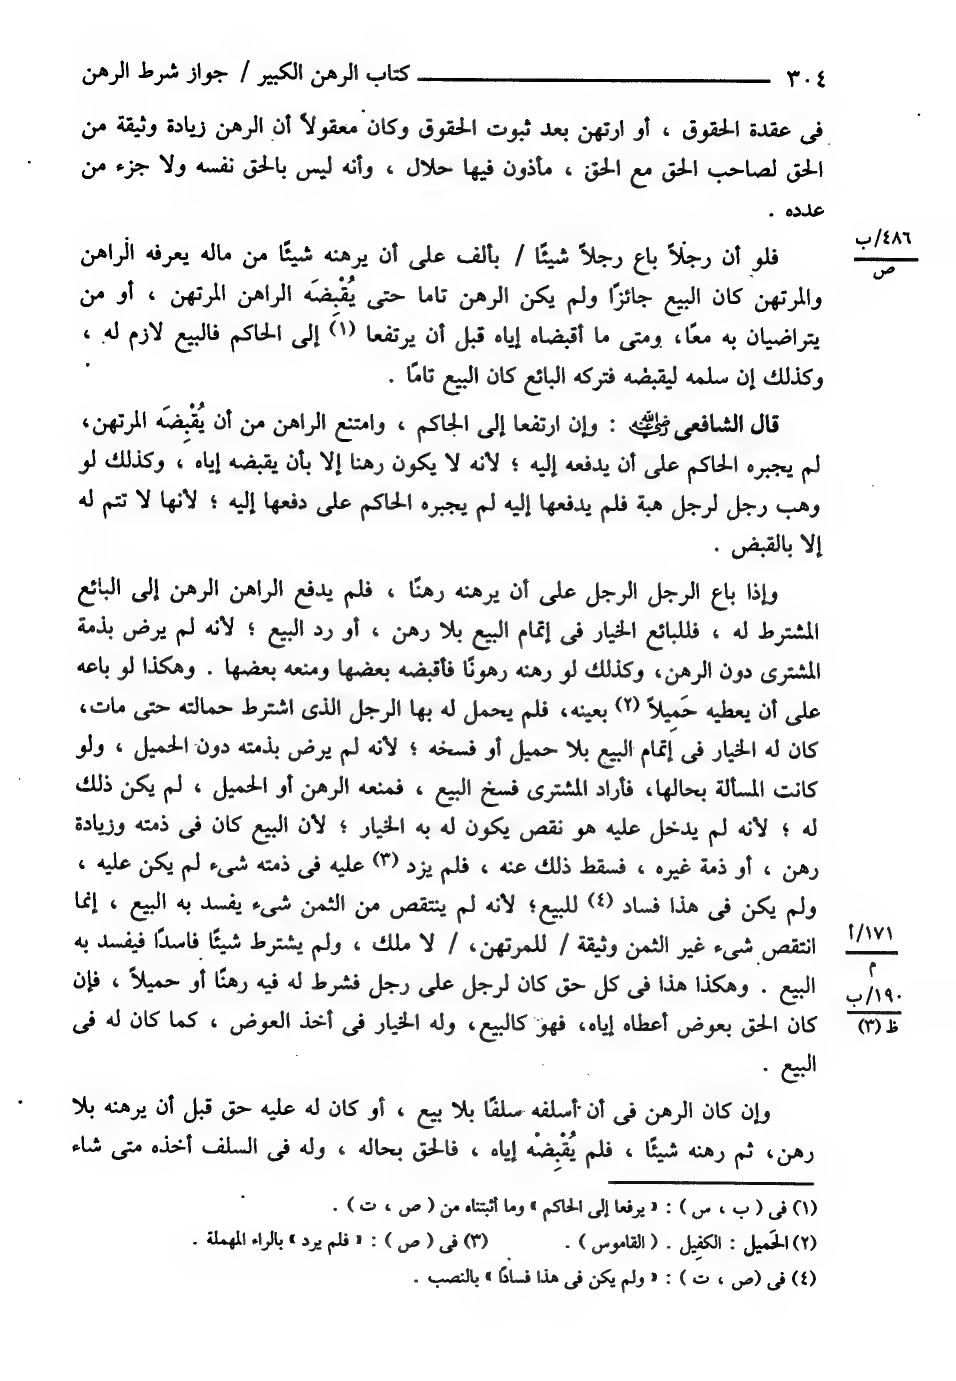 ٣٠٤ كتاب الرهن الكبير / جواز شرط الرهن
فى عقدة الحقوق ، أو ارتهن بعد ثبوت الحقوق وكان معقولاً أن الرهن زيادة وثيقة من
الحق لصاحب الحق مع الحق ، مأذون فيها حلال ، وأنه ليس بالحق نفسه ولا جزء من
عدده .
فلو أن رجلاً باع رجلاً شيئًا / بألف على أن يرهنه شيئًا من ماله يعرفه الراهن
٤٨٦/ب
ص
والمرتهن كان البيع جائزًا ولم يكن الرهن تاما حتى يُقْبِضَه الراهن المرتهن ، أو من
يتراضيان به معًا، ومتى ما أقبضاه إياه قبل أن يرتفعا (١) إلى الحاكم فالبيع لازم له ،
وكذلك إن سلمه ليقبضه فتركه البائع كان البيع تامًا .
قال الشافعى رضي الله عنه : وإن ارتفعا إلى الحاكم ، وامتنع الراهن من أن يُقْبِضَه المرتهن،
لم يجبره الحاكم على أن يدفعه إليه ؛ لأنه لا يكون رهنا إلا بأن يقبضه إياه ، وكذلك لو
وهب رجل لرجل هبة فلم يدفعها إليه لم يجبره الحاكم على دفعها إليه ؛ لأنها لا تتم له
إلا بالقبض .
وإذا باع الرجل الرجل على أن يرهنه رهنًا ، فلم يدفع الراهن الرهن إلى البائع
المشترط له ، فللبائع الخيار فى إتمام البيع بلا رهن ، أو رد البيع ؛ لأنه لم يرض بذمة
المشترى دون الرهن، وكذلك لو رهنه رهونًا فأقبضه بعضها ومنعه بعضها . وهكذا لو باعه
على أن يعطيه حَمِيلاً (٢) بعينه، فلم يحمل له بها الرجل الذى اشترط حمالته حتى مات،
كان له الخيار فى إتمام البيع بلا حميل أو فسخه ؛ لأنه لم يرض بذمته دون الحميل ، ولو
كانت المسألة بحالها، فأراد المشترى فسخ البيع ، فمنعه الرهن أو الحميل ، لم يكن ذلك
له ؛ لأنه لم يدخل عليه هو نقص يكون له به الخيار ؛ لأن البيع كان فى ذمته وزيادة
رهن ، أو ذمة غيره ، فسقط ذلك عنه ، فلم يزد (٣) عليه فى ذمته شىء لم يكن عليه ،
ولم يكن فى هذا فساد (٤) للبيع؛ لأنه لم ينتقص من الثمن شىء يفسد به البيع ، إنما
انتقص شىء غير الثمن وثيقة / للمرتهن، / لا ملك ، ولم يشترط شيئًا فاسدًا فيفسد به
١٧١/أ
م
البيع . وهكذا هذا فى كل حق كان لرجل على رجل فشرط له فيه رهنًا أو حميلاً ، فإن
١٩٠/ب
ظ (٣)
كان الحق بعوض أعطاه إياه، فهو كالبيع، وله الخيار فى أخذ العوض ، كما كان له فى
البيع .
وإن كان الرهن فى أن أسلفه سلفًا بلا بيع ، أو كان له عليه حق قبل أن يرهنه بلا
رهن، ثم رهنه شيئًا ، فلم يُقْبِضْه إياه ، فالحق بحاله ، وله فى السلف أخذه متى شاء
(١) فى ( ب ، س ) : « يرفعا إلى الحاكم » وما أثبتناه من ( ص ، ت ) .
(٢) الحَمِيل : الكفيل . ( القاموس ) . (٣) فى ( ص ) : « فلم يرد » بالراء المهملة .
(٤) فى (ص ، ت ) : « ولم يكن فى هذا فسادًا » بالنصب .